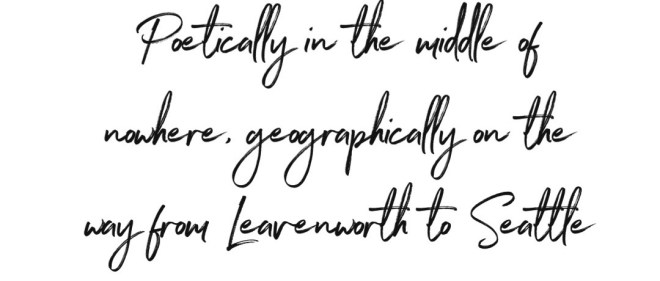 Poetically in the middle of
nowhere, geographically on the
way from Leavenworth to Seattle